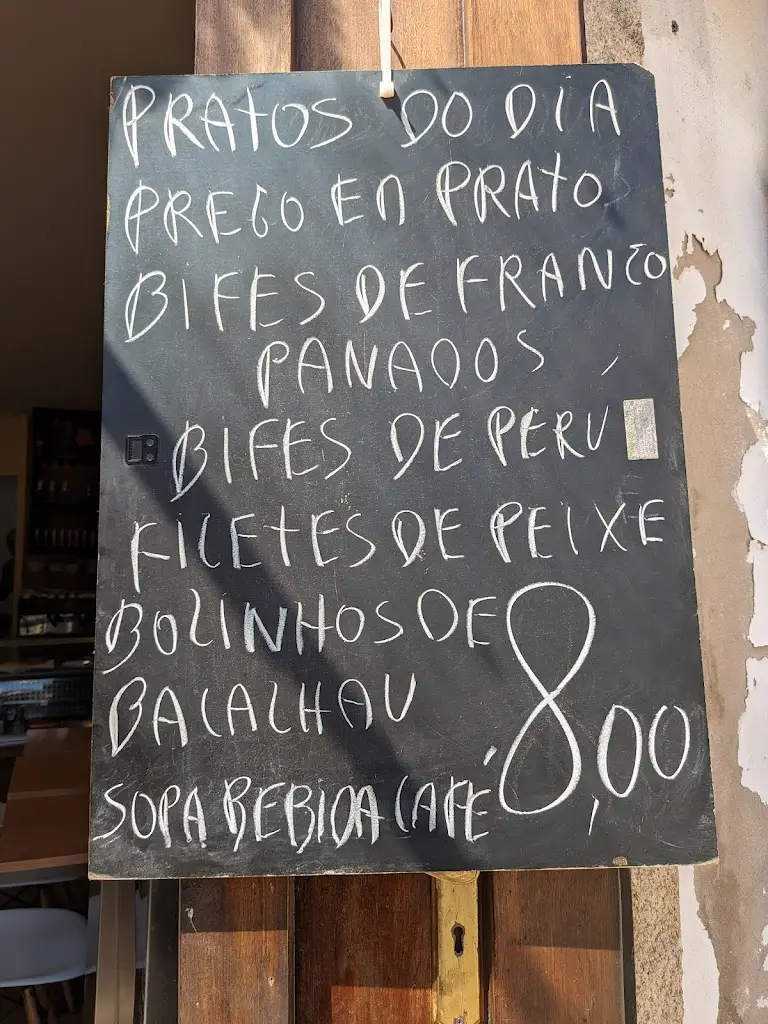 PRATOS DO DIA
PREGO EN PRATO
BIFES DE FRANGO
PANADOS
BIFES DE PERÚ
FILETES DE PEIXE
BOLINHOS DE
BACALHAU
SOPA BEBIDA CAFÉ 8,00